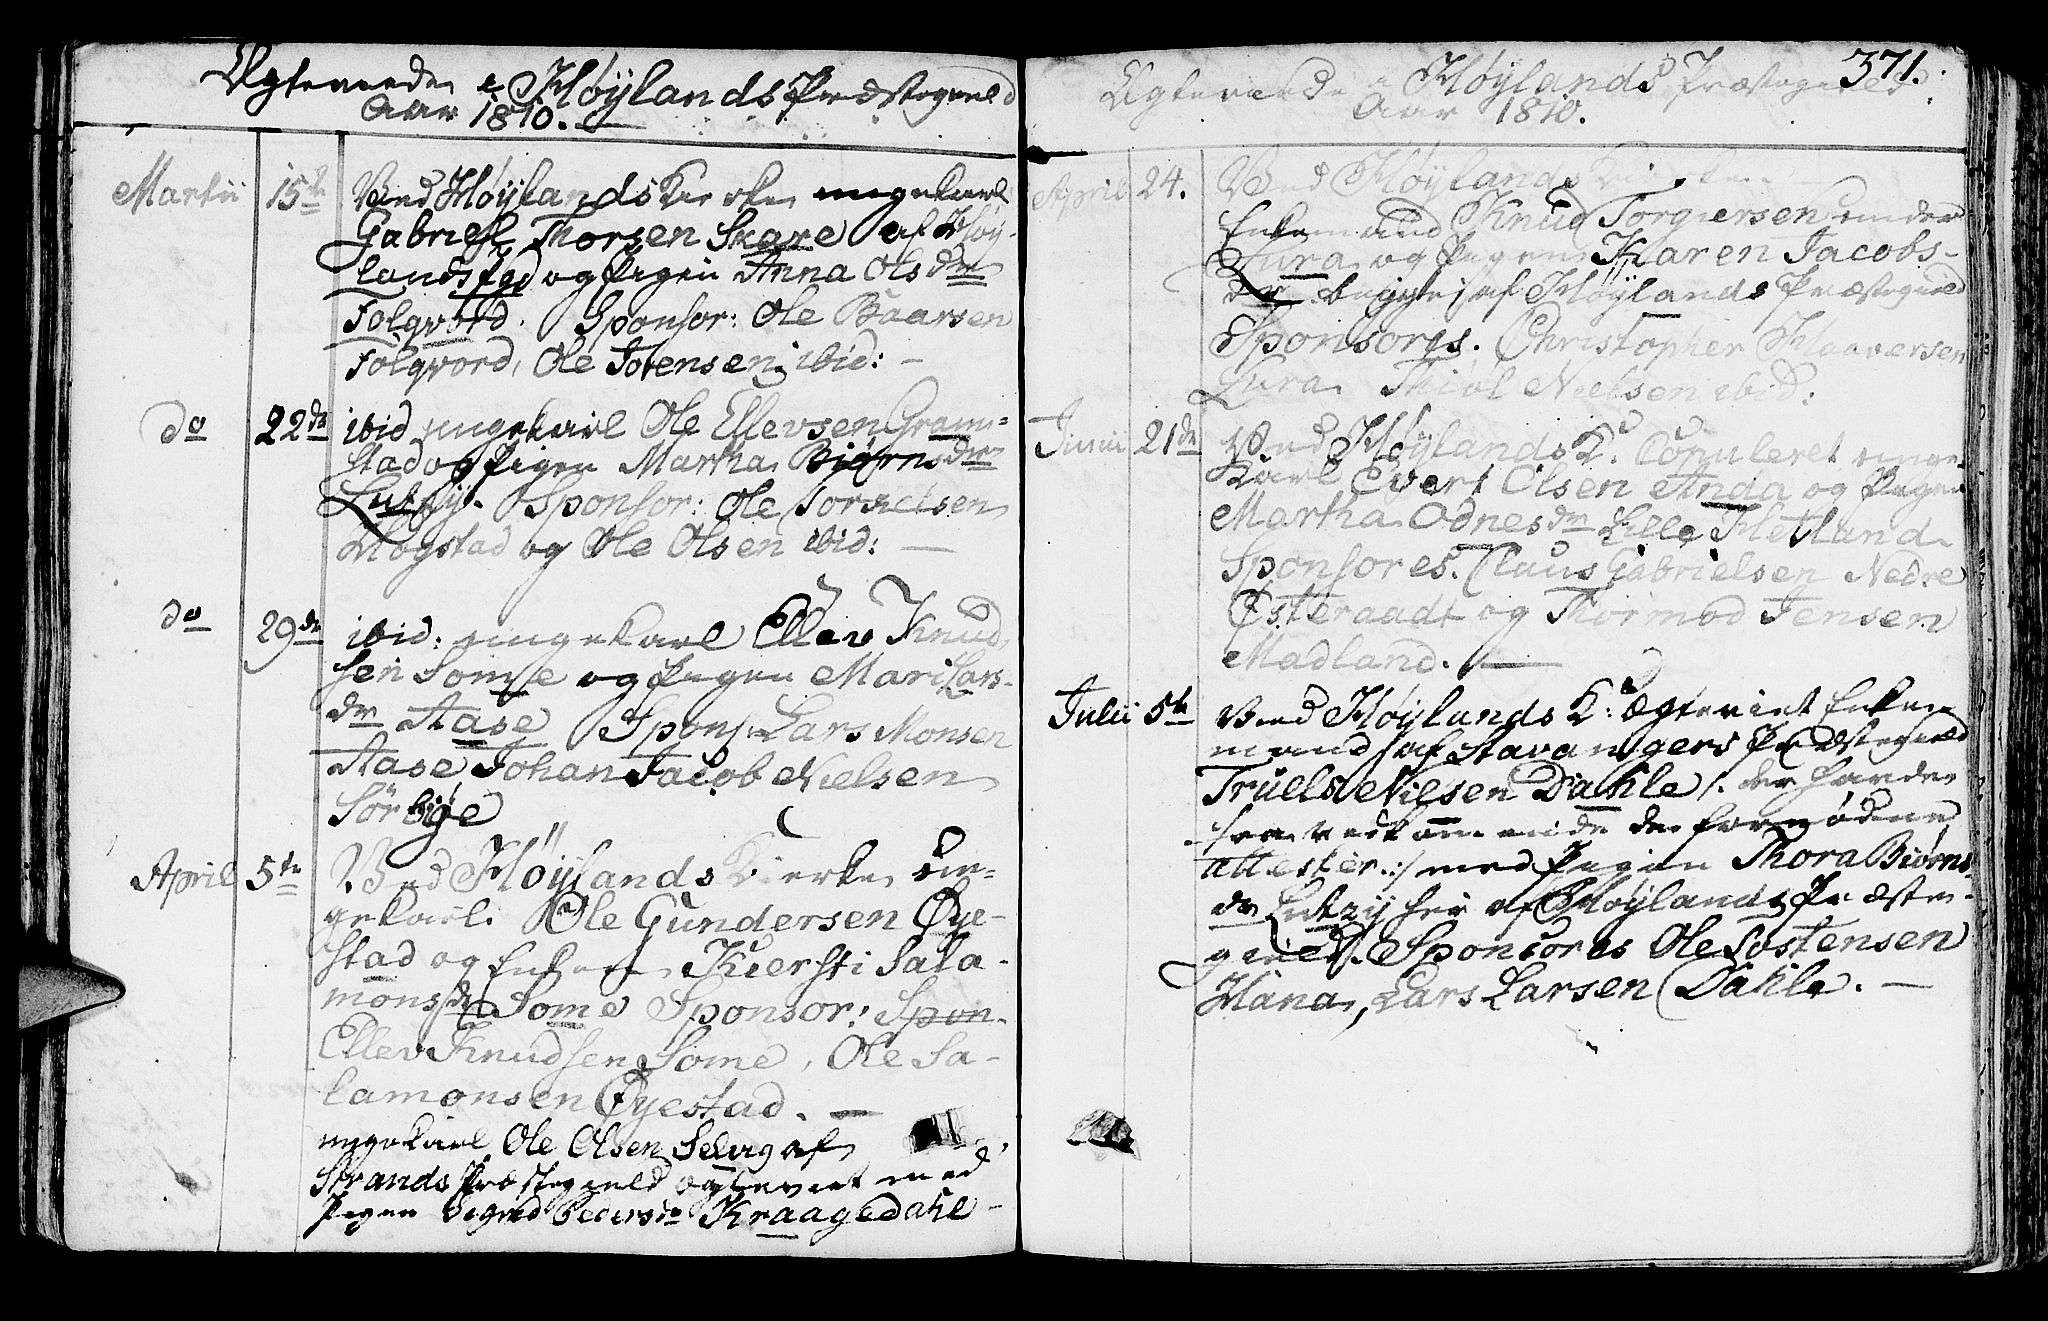 Egteviede i Höylands Præstegield
Aar 1810.
Martii 15de Ved Höylands Kirke ungekarl
Gabriel Thorsen Skare af Höy-
landsfgd og Pigen Anna Olsdr
Folqvord. Sponsor: Ole Baarsen
Folqvord, Ole Torensen ibid:
do 22de ibid ungekarl Ole Ellevsen Gram-
stad og Pigen Martha Biörnsdr
Lutsy. Sponsor: Ole
og Ole Olsen ibid:
do 29de ibid: ungekarl Ellev Knud
sen Somme og Pigen Mari Lars-
dr Aase Spons: Lars Monsen
Aase Johan Jacob Nielsen
Sörbye
April 5te Ved Höylands Kierke un-
gekarl Ole Gundersen Øye-
stad og Enken Kiersti Sala-
monsdr Some Sponsor: Spon
Ellev Knudsen Some, Ole Sa-
lamonsen Øyestad.
ungekarl Ole Olsen Selvig af
Strands Præstegield egteviet med
Pigen Sigrid Pedersdr Kraagedahl
371.
Egteviede i Höylands Præstegield
Aar 1810.
April 24. Ved Höylands Kirke
Enkemand Knud Torgiersen
Lura og Pigen Karen Jacobs-
dr begge af Höylands Præstegield
Sponsores. Christopher Haaversen
Lura Niels Nielsen ibid:
Junii 21de Ved Höylands K: Copuleret unge-
karl Evert Olsen Anda og Pigen
Martha Odnesdr Lille Hetland
Sponsores. Claus Gabrielsen Nedre
Østeraadt og Thormod Jensen
Madland.
Julii 5te Ved Höylands K: Ægteviet Enke-
mand af Stavangers Præstegield
Truels Nilsen Dahle /: der havde
fra vedkommende de fornødne
attester :/ med Pigen Thora Biörns
dr Lutzy her af Höylands Præste-
gield. Sponsores Ole Tostensen
Hana, Lars Larsen Dahle.